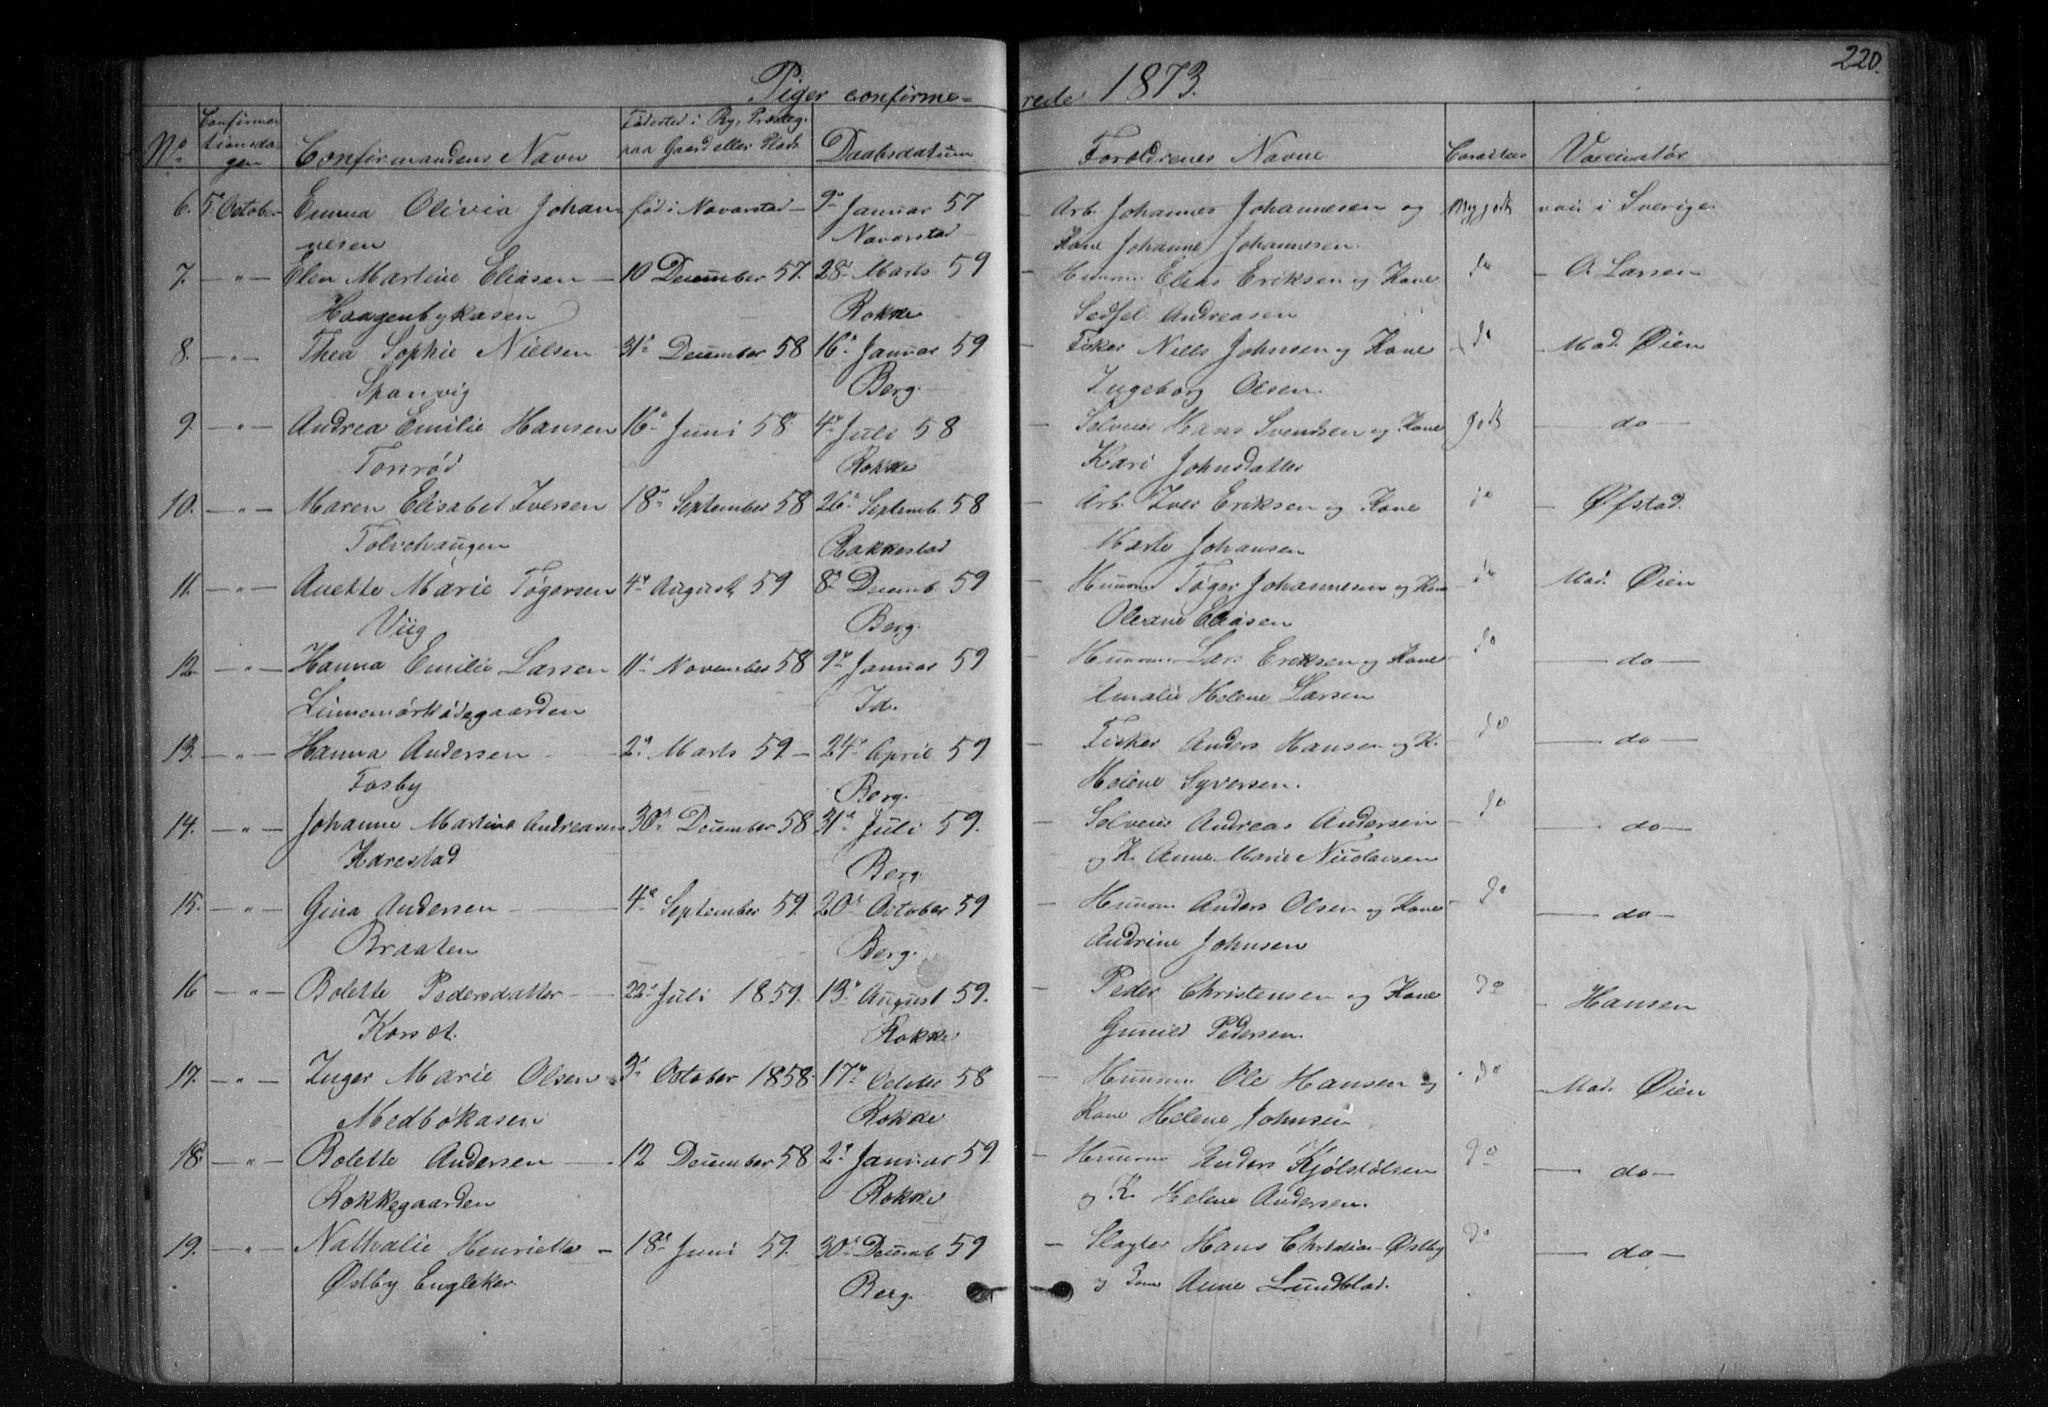 220.
Piger confirme- rede 1873.
No. Confirmationsdagen Confirmandens Navn Fødested i By, Præsteg. paa Gaard eller Plads Daabsdatum Forældrenes Navne Caracteer Vaccinatør
6. 5. October Emma Olivia Johan- født i Navarstad — 9de Januar 57 — Arb. Johannes Johannesen og Mg godt vac. i Sverige
nesen Navarstad Kone Johanne Johannesen.
7. — " — Elen Martine Eliasen — 10 December 57. 28de Marts 59 — Huusm Elias Eriksen og Kone do — O. Larsen
Haagenbykasen Rokke Sedsel Andreasen
8. — " — Thea Sophie Nielsen — 31te December 58 16de Januar 59 — Fisker Niels Johnsen og Kone do — Mad. Øien
Sponvig Berg. Ingeborg Olsen.
9. — " — Andrea Emilie Hansen 16de Juni 58 4de Juli 58 — Selveier Hans Svendsen og Kone godt — do —
Tonrød Rokke Kari Johnsdatter
10. — " — Maren Elisabet Iversen 18de September 58 26de Septemb. 58 — Arb. Iver Eriksen og Kone do — Øfstad.
Tolvehaugen Rakkestad Marte Johansen
11. — " — Anette Marie Tøgersen 4de August 59 8de Decemb. 59 — Huusm Tøger Johannesen og Kone do Mad. Øien
Viig Berg. Oleane Eliasen
12. — " — Hanna Emilie Larsen 11te November 58 9de Januar 59 — Huusm Lars Eriksen og Kone do — do —
Linnemørkødegaarden Id. Amalie Helene Larsen
13. — " — Hanna Andersen — 2den Marts 59 — 24de April 59 — Fisker Anders Hansen og K. do — do —
Fosby Berg. Helene Syversen.
14. — " — Johanne Martine Andreasen 30te December 58 31te Juli 59. — Selveier Andreas Andersen do — do —
Karestad Berg. og K. Anne Marie Nicolaisen
15. — " — Gina Andersen — 4de September 59. 20de October 59 — Huusm Anders Olsen og Kone do — do —
Braaten Berg. Andrine Johnsen
16 — " — Bolette Pedersdatter — 22de Juli 1859. 13de August 59. — Peder Christensen og Kone do — Hansen
Korsæt. Rokke Gunild Pedersen.
17. — " — Inger Marie Olsen 3de October 1858. 17de October 58 — Huusm Ole Hansen og do — Mad. Øien
Medbøkasen Rokke Kone Helene Johnsen
18. — " — Bolette Andersen — 12 December 58 2den Januar 59. — Huusm Anders Kjølstolsen do — do —
Rokkegaarden Rokke og K. Helene Andersen.
19. — " — Nathalie Henriette — 18de Juni 59. 30te Decemb 59 — Slagter Hans Christian Østby do — do —
Østby Engleker Berg. og Kone Anne Lundblad.